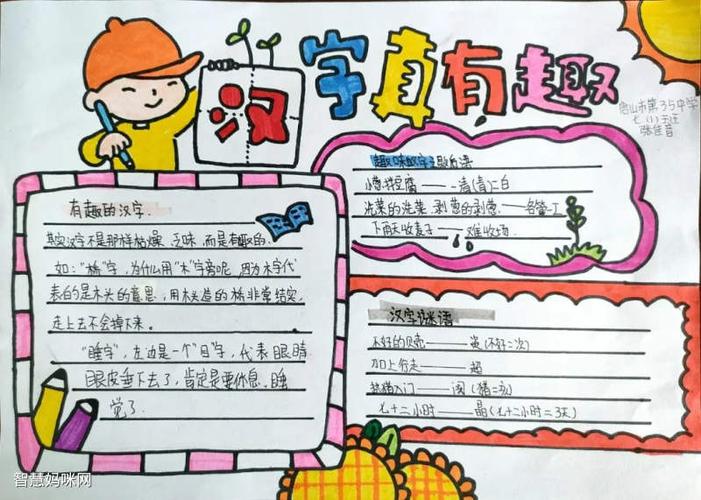 汉字真有趣
唐山市第35中学
七(1)王廷
张佳音
有趣的汉字.
其实汉字不是那样枯燥、乏味,而是有趣的.
如:"桥"字,为什么用"木"字旁呢,因为木字代
表的是木头的意思,用木头造的桥非常结实,
走上去不会掉下来。
"睡字",左边是一个"目"字,代表眼睛
眼皮垂下去了,肯定是要休息、睡
觉了.
趣味汉字之歇后语
小葱拌豆腐——一清(青)二白
洗菜的洗菜,剥葱的剥葱——各管一工
下雨天收麦子——难收场.
汉字谜语
不好的贝壳——资(不好=次)
加上行走——超
熟猪入门——阂(猪=亥)
七十二小时——晶(七十二小时=3天)
智慧妈咪网